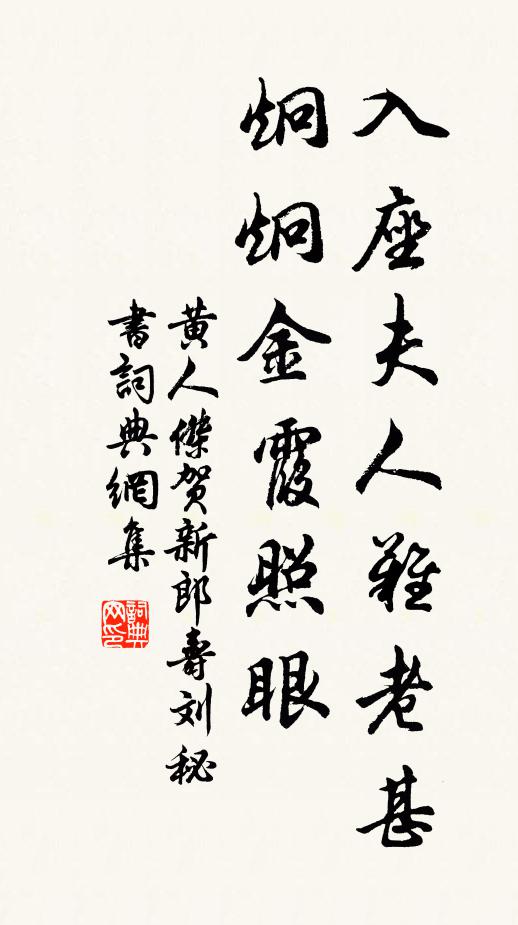 入座夫人難老甚
炯炯金霞照眼
黄人傑贺新郎壽刘秘
書詞典網集
詞典网印